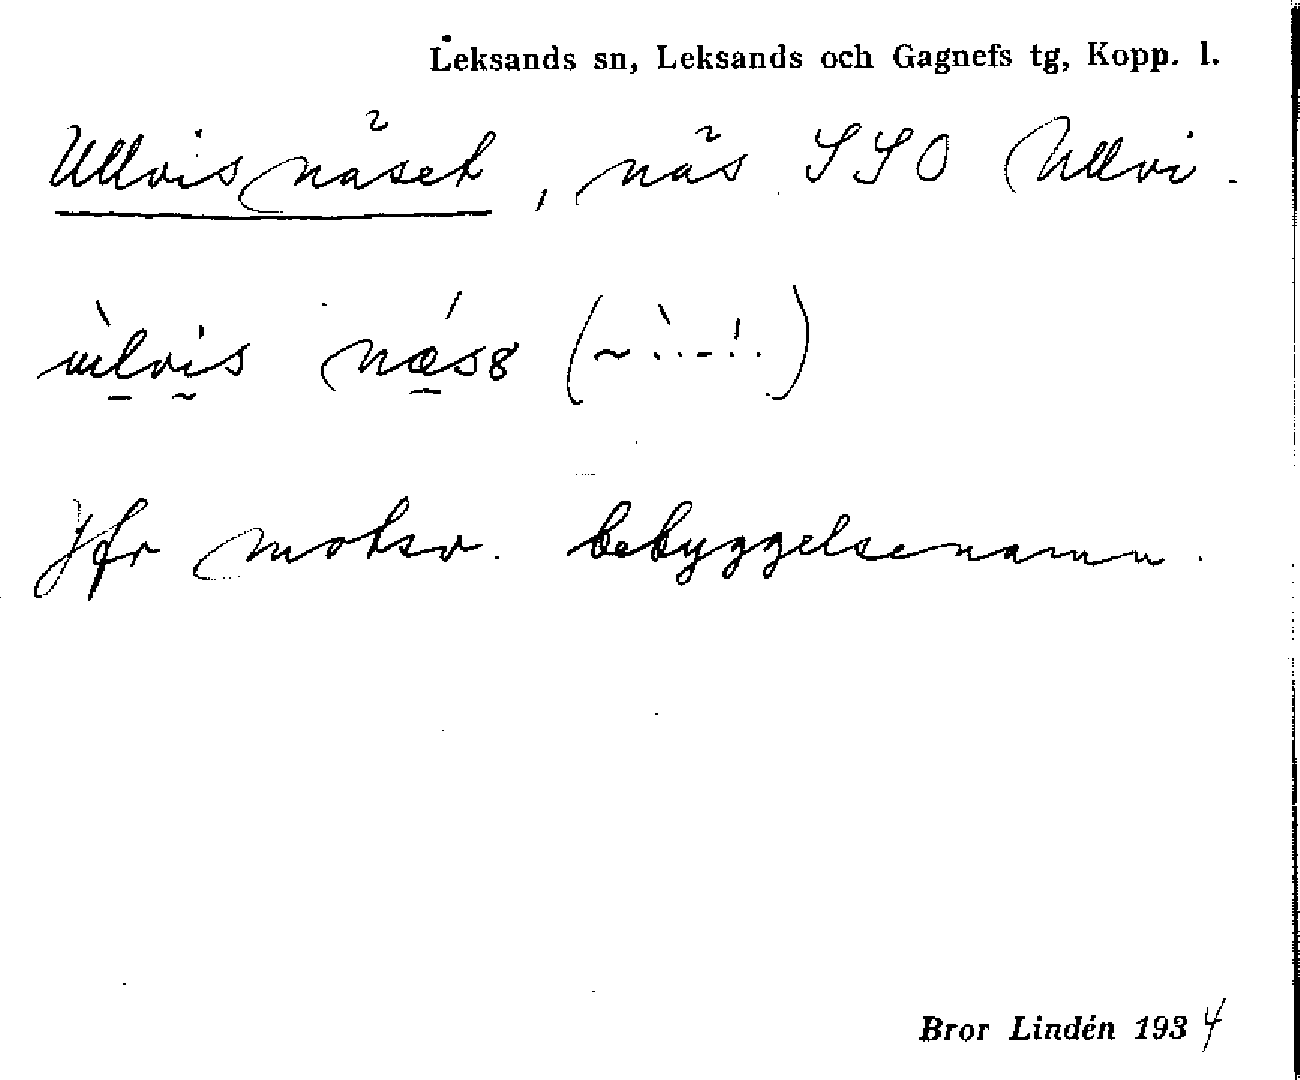 Leksands sn, Leksands och Gagnefs tg, Kopp. l.
Ullvisnäset, näs SSO Ullvi.
Jfr motsv. bebyggelsenamn.
Bror Lindén 1934